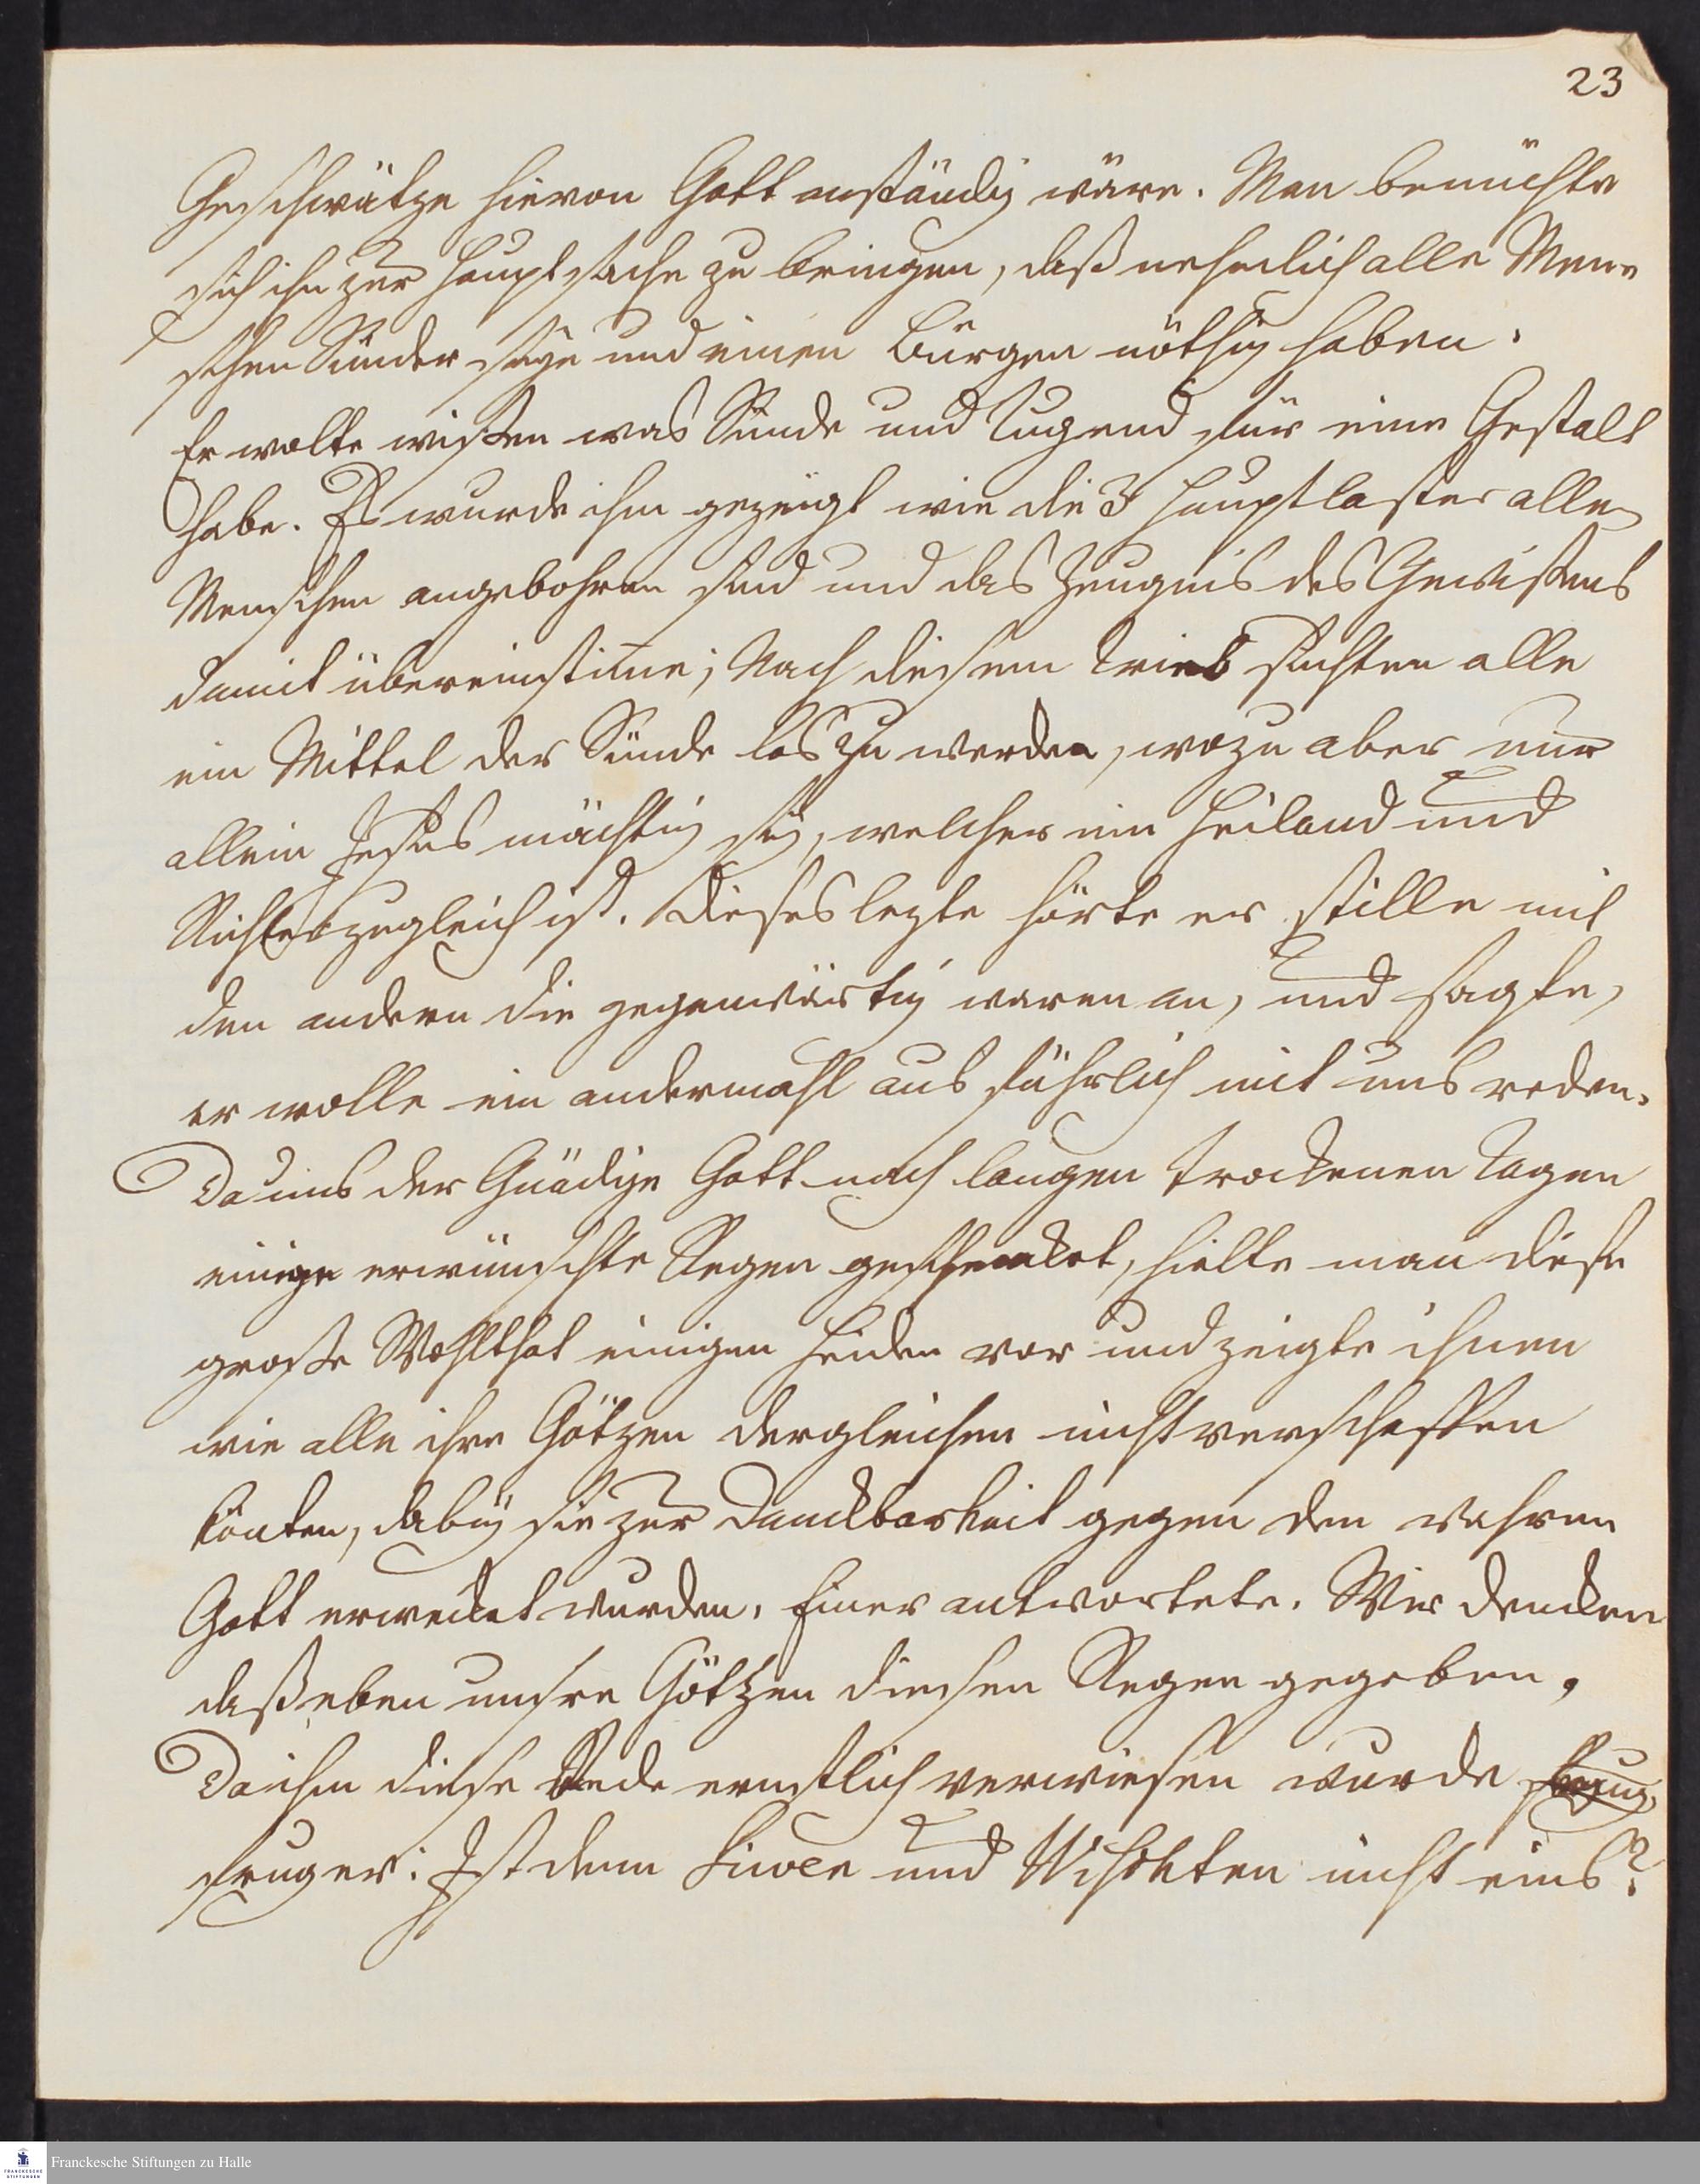 23
Geschwätze hievon Gott anständig wäre. Man bemühte
sich ihn zur Hauptsache zu bringen, daß nehmlich alle Men-
schen Sünder seyn und einen Bürgen nöthig haben.
Er wolte wißen was Sünde und Tugend für eine Gestalt
habe. Es wurde ihm gezeigt wie die 3 Hauptlaster allen
Menschen angebohren sind und das Zeugnis des Gewißens
damit übereinstim̅e; Nach diesem Trieb suchten alle
ein Mittel der Sünde los zu werden, wozu aber nur
allein Jesus mächtig sey, welcher ein Heiland und
Richter zugleich ist. Dieses lezte hörte er stille mit
den andern die gegenwärtig waren an, und sagte,
er wolle ein andermahl ausführlich mit uns reden.
Da uns der Gnädige Gott nach langen trockenen Tagen
einige erwünschte Regen geschencket, hielte man diese
große Wohlthat einigen Heiden vor und zeigte ihnen
wie alle ihre Götzen dergleichen nicht verschaffen
könten, dabey sie zur Danckbarkeit gegen den wahren
Gott erwecket wurden. Einer antwortete. Wir dencken
daß eben unsre Götzen diesen Regen gegeben.
Da ihm diese Rede ernstlich verwiesen wurde
frug er: Ist denn Siwen und Wischtten nicht eins?
Franckesche Stiftungen zu Halle
FRANCKESCHE
STIFTUNGEN